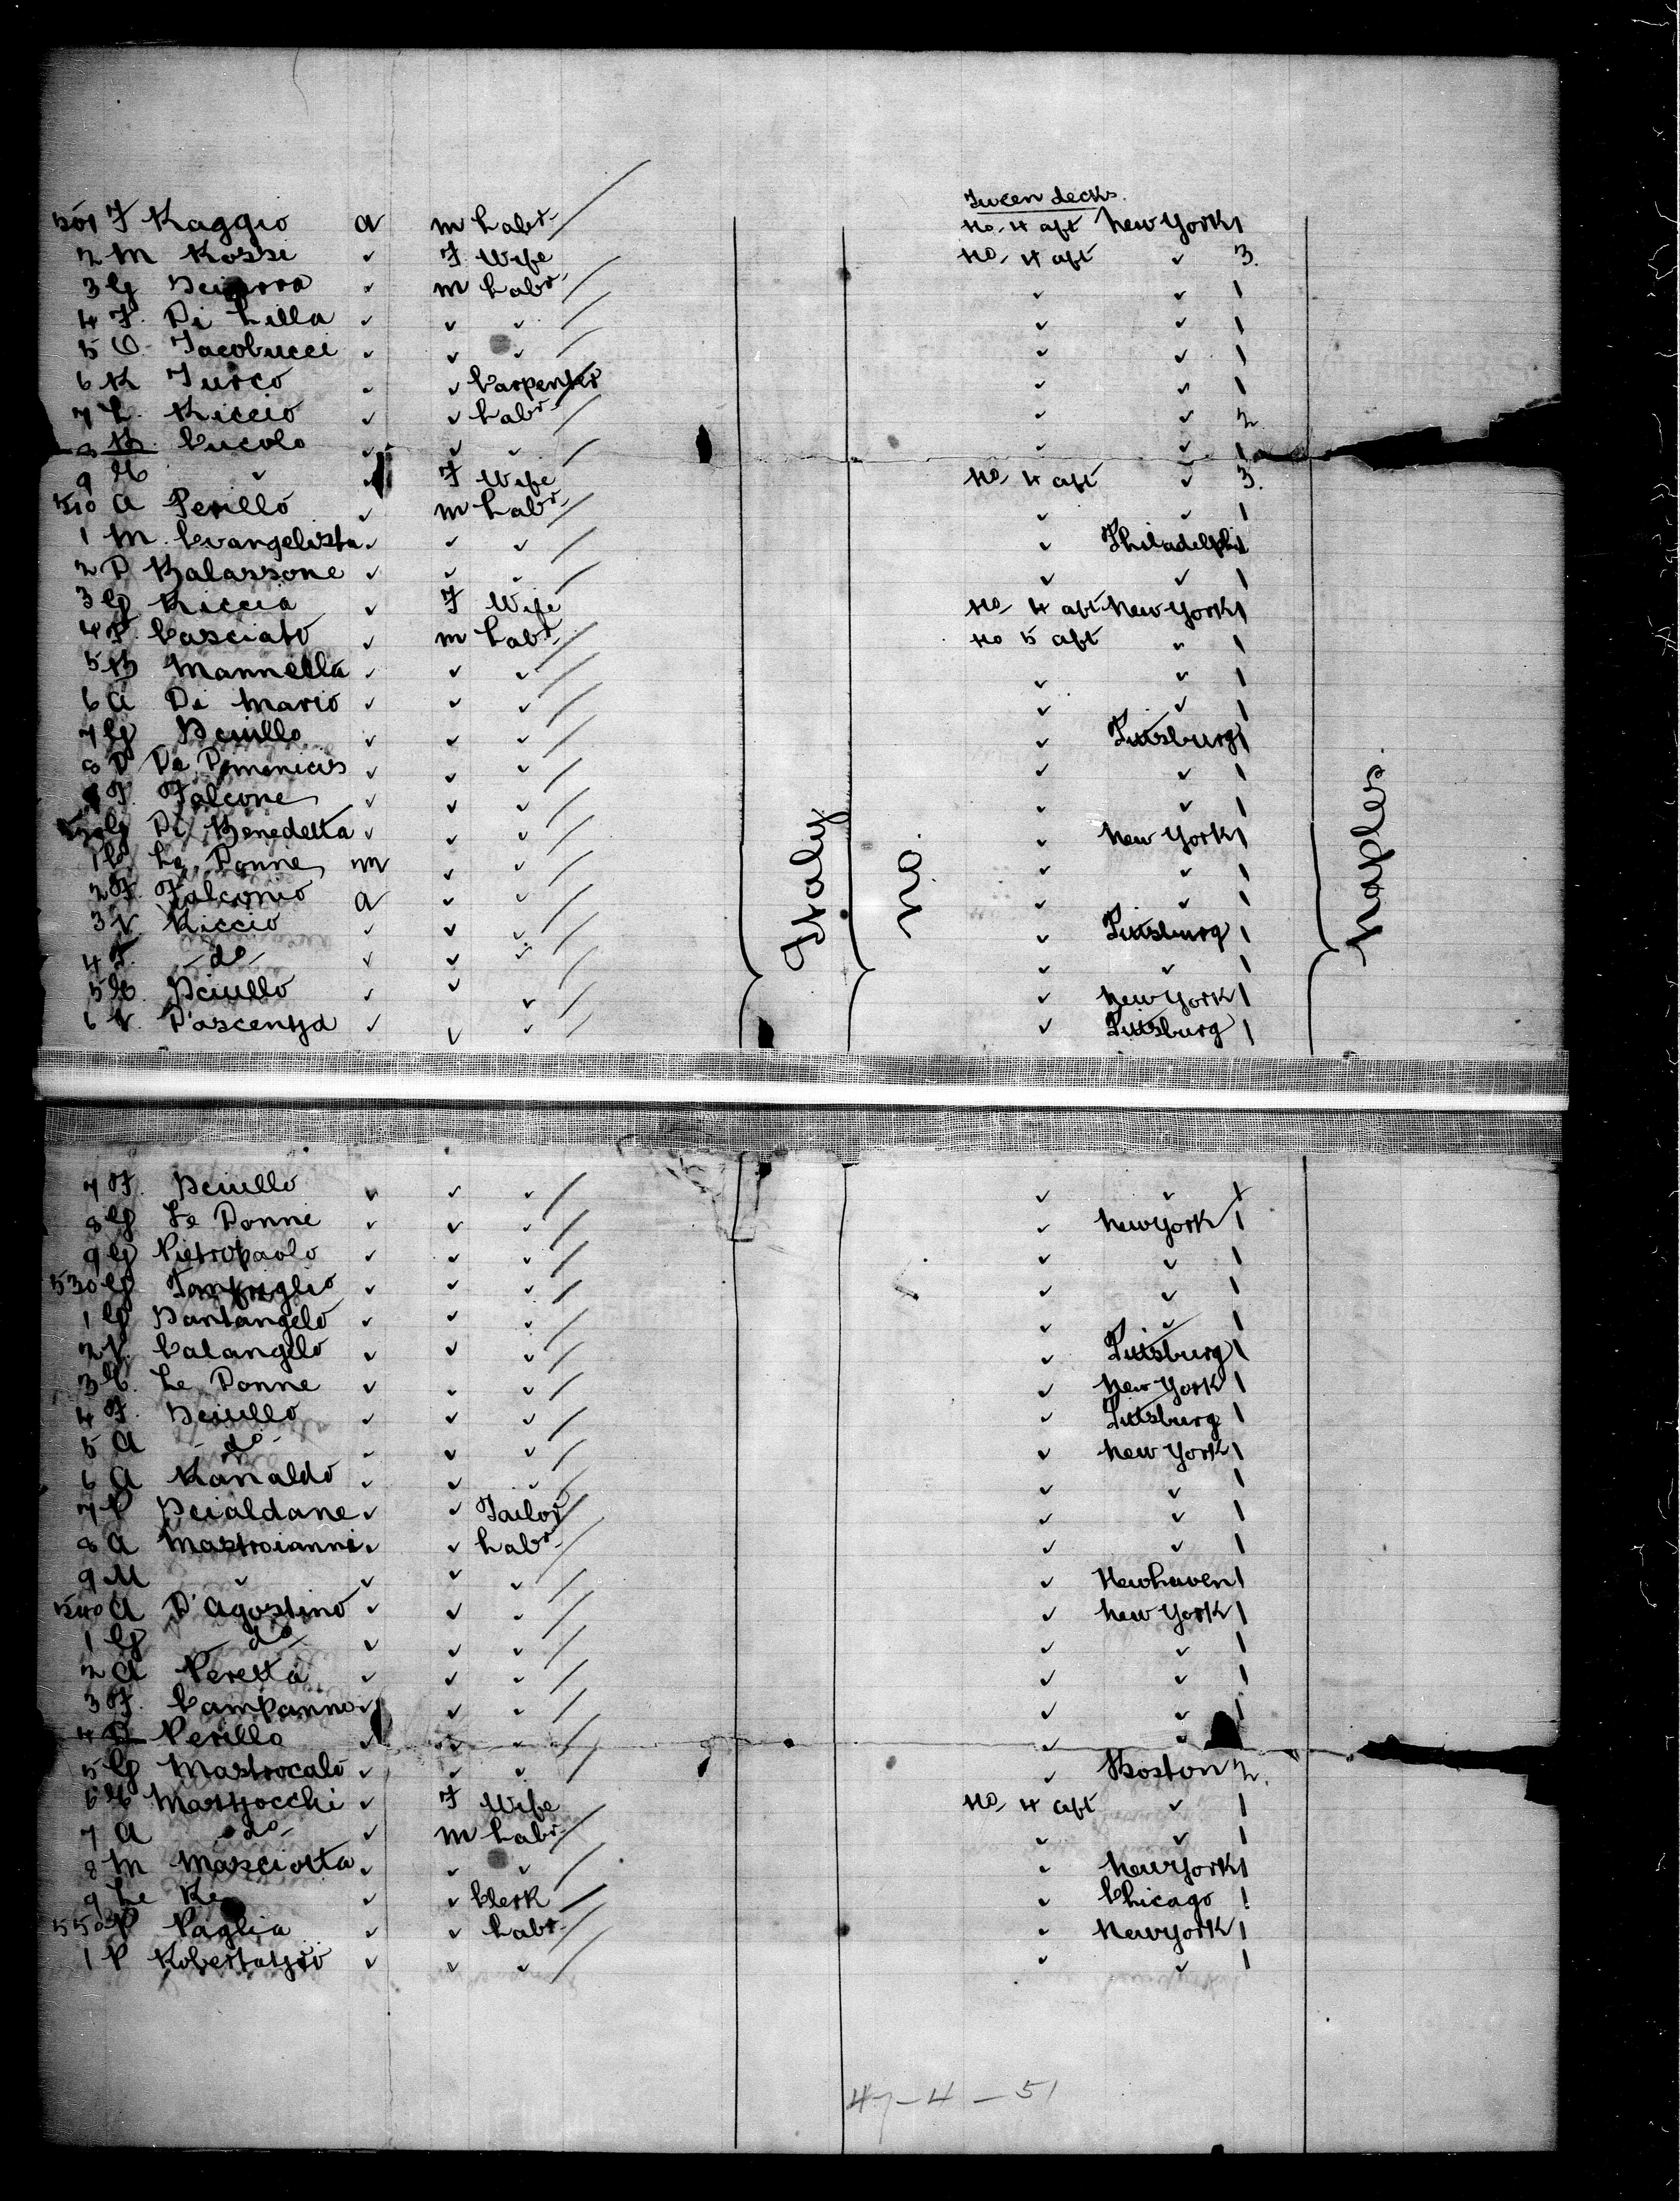 Tween decks.
501 F Raggio a m Labr. No. 4 aft New York 1
2 M Rossi ✓ F Wife No. 4 aft ✓ 3.
3 G ✓ m Labr. ✓ ✓ 1
4 F. Di Lilla ✓ ✓ ✓ ✓ ✓ 1
5 O. Iacobucci ✓ ✓ ✓ ✓ ✓ 1
6 R Turco ✓ ✓ Carpenter ✓ ✓ 1
7 L. Riccio ✓ ✓ Labr. ✓ ✓ 2
8 B. Cucolo ✓ ✓ ✓ ✓ ✓ 1
9 ✓ ✓ F Wife No. 4 aft ✓ 3.
510 A Perillo ✓ m Labr. ✓ ✓ 1
1 M. Evangelista ✓ ✓ ✓ ✓ Philadelphi 1
2 D Balassone ✓ ✓ ✓ ✓ ✓ 1
3 G Riccia ✓ F Wife No. 4 aft New York 1
4 P. Casciato ✓ m Labr. No 5 aft ✓ 1
5 B Mannella ✓ ✓ ✓ ✓ ✓ 1
6 A Di Mario ✓ ✓ ✓ ✓ ✓ 1
7 G Sciullo ✓ ✓ ✓ ✓ Pittsburg 1
8 D De Dominicis ✓ ✓ ✓ ✓ ✓ 1
F. Falcone ✓ ✓ ✓ ✓ ✓ 1
520 G Di Benedetta ✓ ✓ ✓ ✓ New York 1
1 Le Donne m ✓ ✓ ✓ ✓ 1
2 F. Falconio a ✓ ✓ ✓ ✓ 1
3 V. Riccio ✓ ✓ ✓ ✓ Pittsburg 1
4 F. -do- ✓ ✓ ✓ ✓ ✓ 1
5 C. Sciullo ✓ ✓ ✓ ✓ New York 1
6 V. D'ascenza ✓ ✓ ✓ ✓ Pittsburg 1
Italy
no.
Naples.
7 F. Sciullo ✓ ✓ ✓ ✓ ✓ 1
8 G Le Donne ✓ ✓ ✓ ✓ New York 1
9 G Pietropaolo ✓ ✓ ✓ ✓ ✓ 1
530 G ✓ ✓ ✓ ✓ ✓ 1
1 G Santangelo ✓ ✓ ✓ ✓ ✓ 1
2 V. Calangelo ✓ ✓ ✓ ✓ Pittsburg 1
3 C. Le Donne ✓ ✓ ✓ ✓ New York 1
4 F. Sciullo ✓ ✓ ✓ ✓ Pittsburg 1
5 A -do- ✓ ✓ ✓ ✓ New York 1
6 A Ranaldo ✓ ✓ ✓ ✓ ✓ 1
7 P Scialdane ✓ ✓ Tailor ✓ ✓ 1
8 A Mastroianni ✓ ✓ Labr. ✓ ✓ 1
9 M ✓ ✓ ✓ ✓ ✓ Newhaven 1
540 A D'Agostino ✓ ✓ ✓ ✓ New York 1
1 G -do- ✓ ✓ ✓ ✓ ✓ 1
2 A Peretta ✓ ✓ ✓ ✓ ✓ 1
3 F. Campanno ✓ ✓ ✓ ✓ ✓ 1
4 Perillo ✓ ✓ ✓ ✓ ✓
5 G Mastrocalo ✓ ✓ ✓ ✓ Boston 2.
6 C Mazzocchi ✓ F Wife No. 4 aft ✓ 1
7 A -do- ✓ m Labr. ✓ ✓ 1
8 M Masciotta ✓ ✓ ✓ ✓ New York 1
9 Le Re ✓ ✓ Clerk ✓ Chicago 1
550 P Paglia ✓ ✓ Labr. ✓ New York 1
1 P Robertazzo ✓ ✓ ✓ ✓ ✓ 1
47-4-51